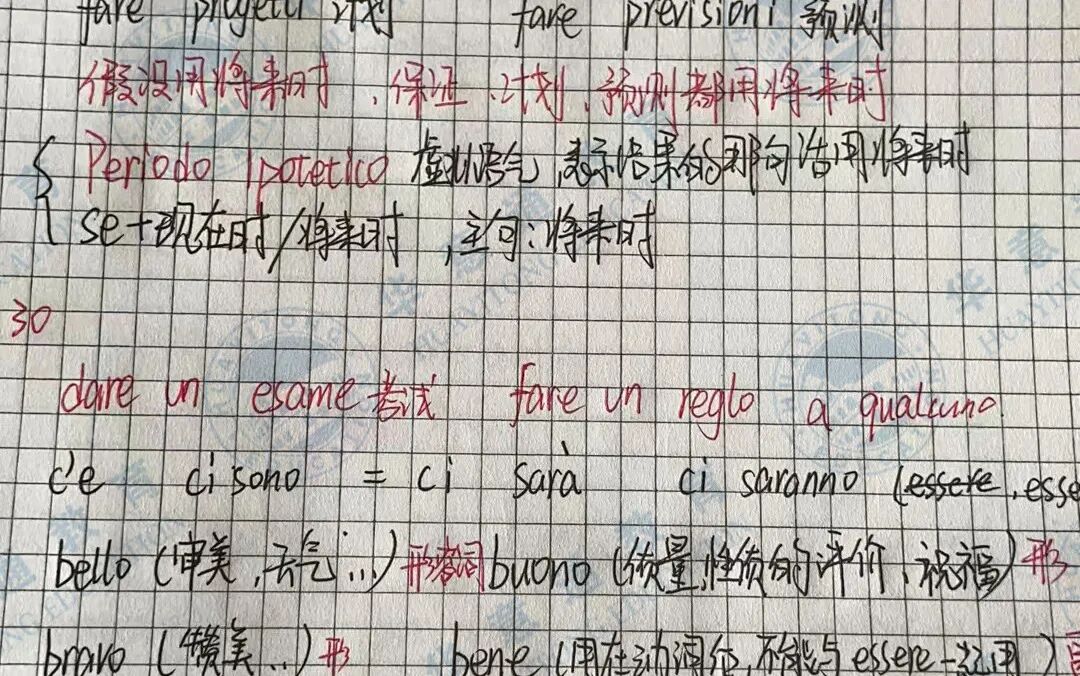 fare progetti 计划 fare previsioni 预测
假设用将来时、保证、计划、预测都用将来时
Periodo Ipotetico 虚拟语气,表示结果的那句话用将来时
se+现在时/将来时,主句:将来时
30
dare un esame 考试 fare un reglo a qualcuno
c'e ci sono = ci sarà ci saranno (essere, esse
bello (审美,天气...) 形容词 buono (质量,性质的评价、祝福) 形
bravo (赞美..) 形 bene (用在动词后,不能与 essere 一起用)